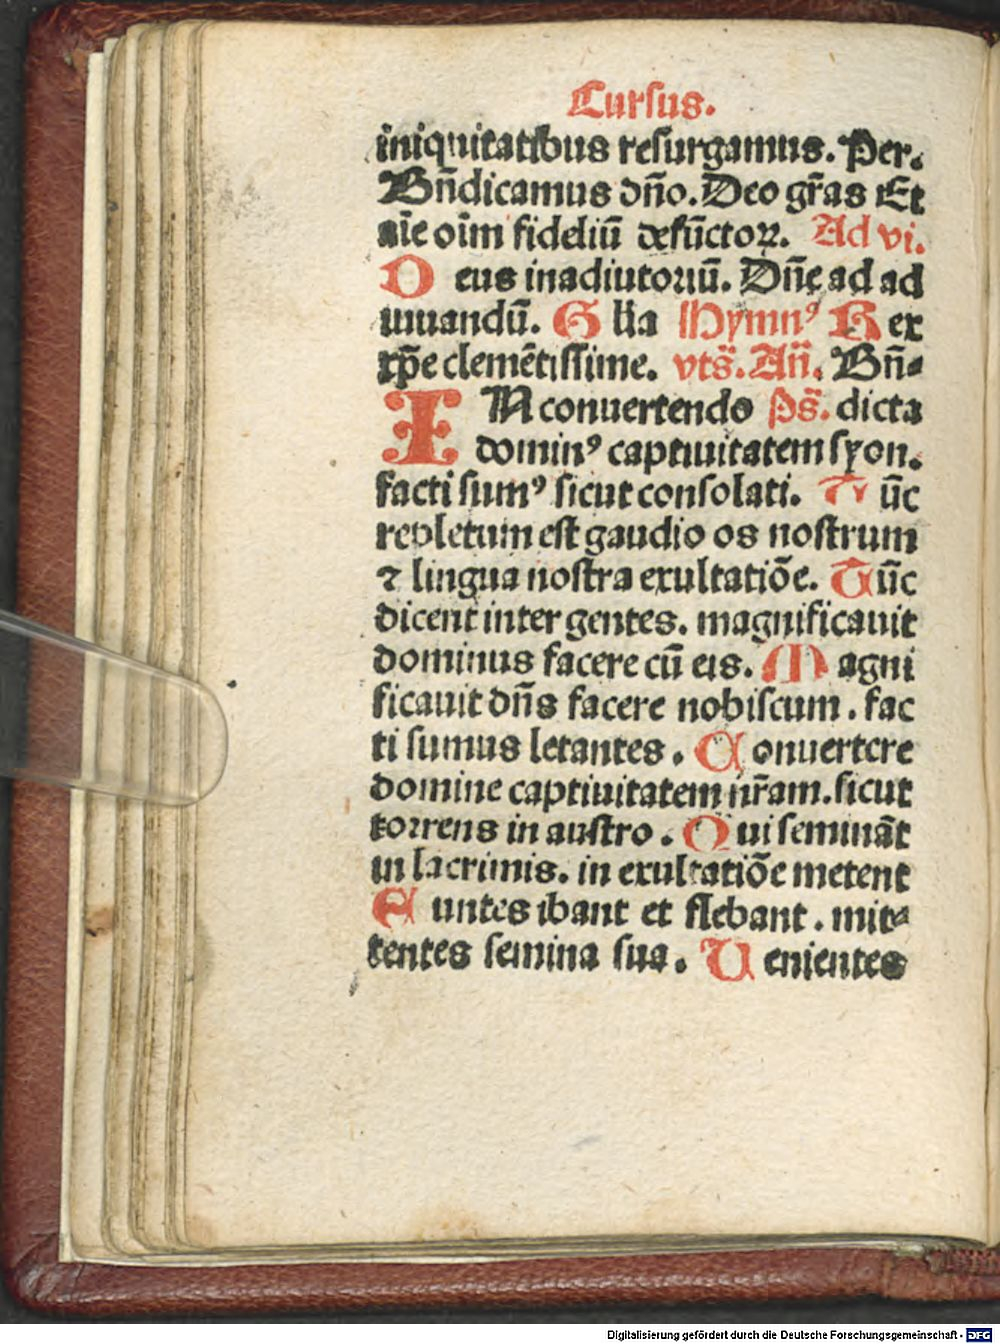 Cursus.
iniquitatibus resurgamus. Per.
Bn̄dicamus dn̄o. Deo gr̄as Et
aīe oīm fideliū defūctoꝝ. Ad vi.
D eus in adiutoriū. Dn̄e ad ad
iuuandū. G lia Hymnꝰ R ex
xp̄e clemētissime. vts̄. An̄. Bn̄-
IN conuertendo Ps̄. dicta
dominꝰ captiuitatem syon.
facti sumꝰ sicut consolati. T ūc
repletum est gaudio os nostrum
⁊ lingua nostra exultatiōe. T ūc
dicent inter gentes. magnificauit
dominus facere cū eis. M agni
ficauit dn̄s facere nobiscum. fac
ti sumus letantes. C onuertere
domine captiuitatem nr̄am. sicut
torrens in austro. Q ui semināt
in lacrimis. in exultatiōe metent
E untes ibant et flebant. mit-
tentes semina sua. V enientes
Digitalisierung gefördert durch die Deutsche Forschungsgemeinschaft - DFG